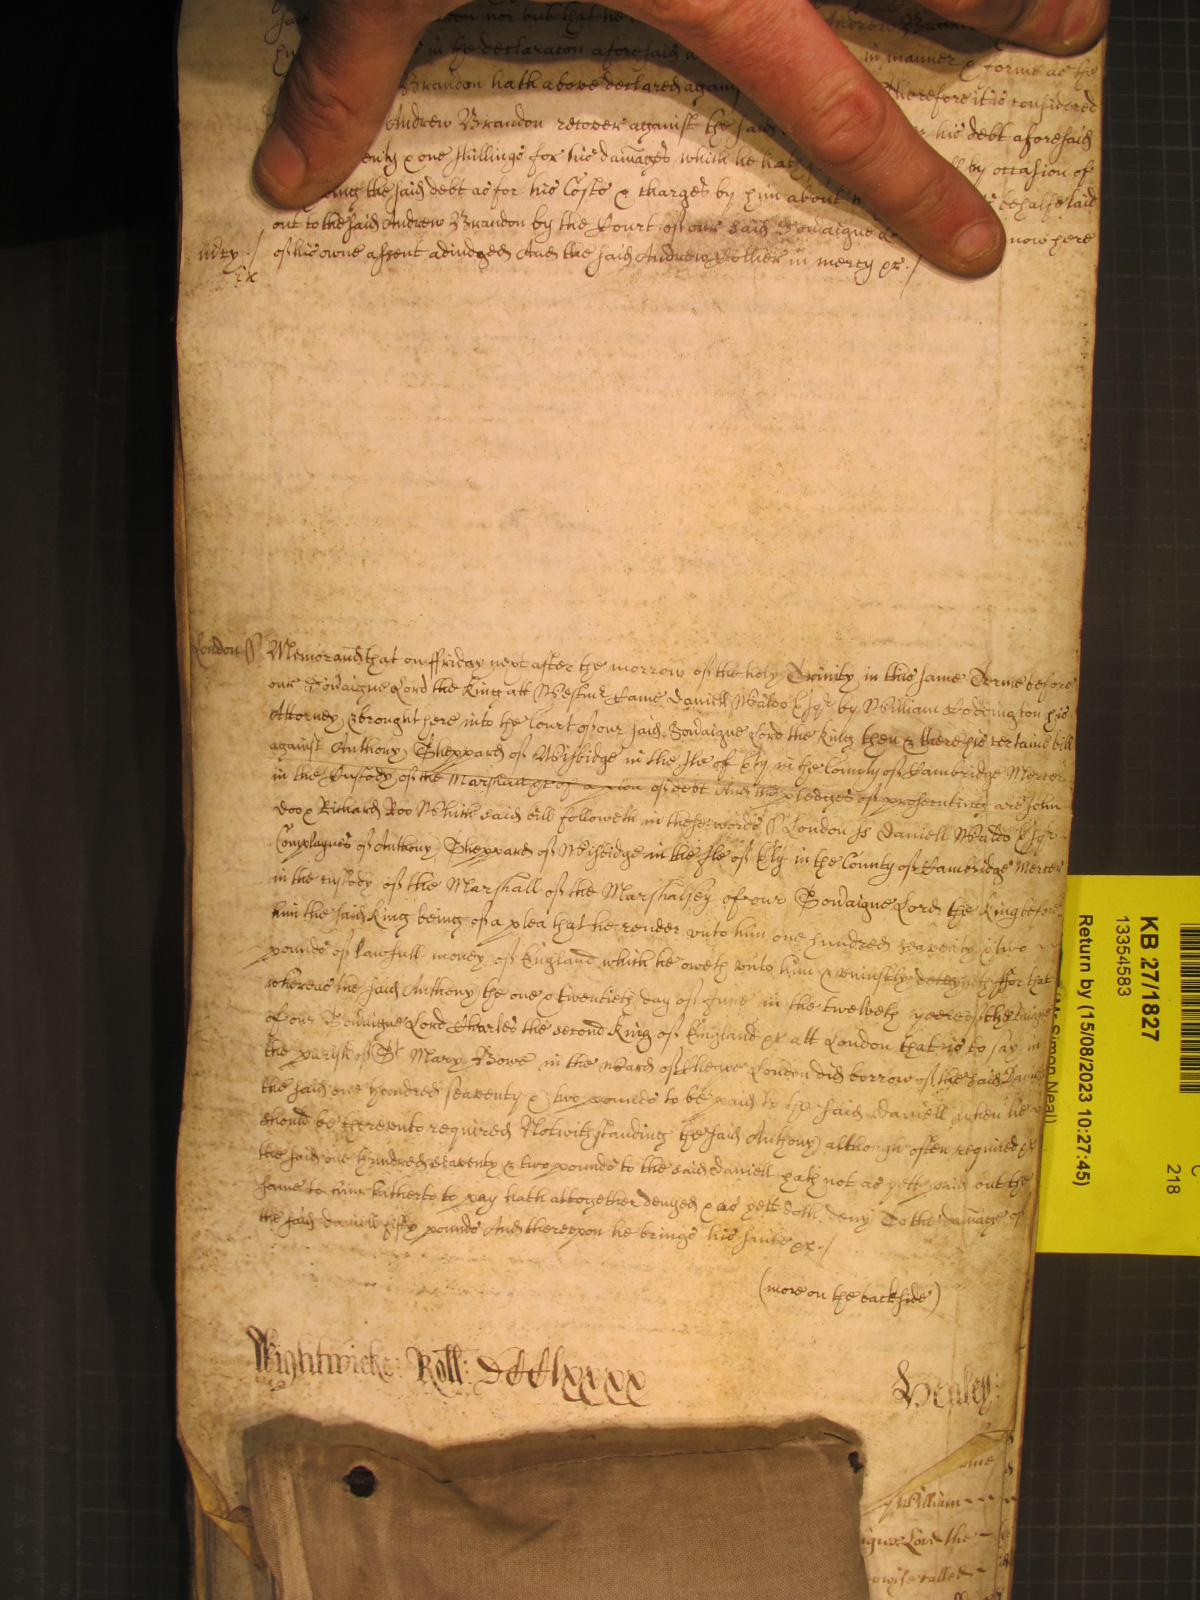 said nor but that he Andrew Brandon
in the declaracon aforesaid in manner & forme as the
Brandon hath above declared against Therefore it is considered
Andrew Brandon recover against the said his debt aforesaid
& one shillings for his damages which he hath by occasion of
the said debt as for his Costs & charges by him about behalfe laid
out to the said Andrew Brandon by the Court of our said Sovaigne now here
mcy./ of his owne assent adiudged And the said Andrew in mercy &c./
London ss Memorand that on ffriday next after the morrow of the holy Trinity in this same Terme before
our Sovaigne Lord the King att Westmr Came Daniell Waldo Esqr by William Loddington his
Attorney, & brought here into the Court of our said Sovaigne Lord the King then & there his certaine bill
against Anthony Sheppard of Wisbidge in the Ile of Ely in the County of Cambridge Mercer
in the Custody of the Marshall &c of a plea of debt And the pledges of prosecuting are John
Doo & Richard Roo Which said bill followeth in these words ss London ss Daniell Waldo Esqr
Complaynes of Anthony Sheppard of Wisbidge in the Ile of Ely in the County of Cambridge Mercer
in the custody of the Marshall of the Marshalsey of our Sovaigne Lord the King before
him the said King being of a plea that he render unto him one hundred seaventy & two
pounds of lawfull money of England which he oweth unto him & uniustly deteyneth ffor that
whereas the said Anthony the one & twentieth day of June in the twelveth yeere of the raigne
of our Sovaigne Lord Charles the second King of England &c att London that is to say in
the parish of St Mary Bowe in the Ward of Cheape London did borrow of the said Daniell
the said one hundred seaventy & two pounds to be paid to the said Daniell when he
should be thereunto required Notwithstanding the said Anthony although often required &c
the said one hundred seaventy & two pounds to the said Daniell hath not as yett paid but the
same to him hitherto to pay hath altogether denyed & as yett doth deny To the damage of
the said Daniell fifty pounds And thereupon he brings his suite &c./
(more on the backside)
Wightwicke: Roll: DCCClxxxx Henley:
William
Lord the
called
KB 27/1827
13354583
Return by (15/08/2023 10:27:45)
(Mr Simon Neal)
218